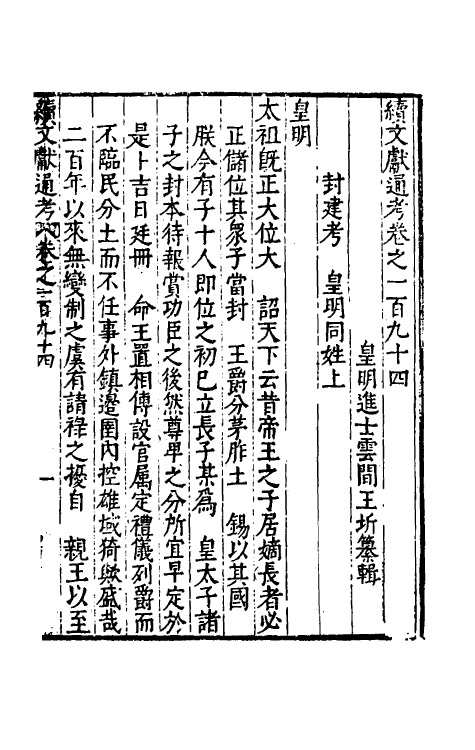 續文獻通考卷之一百九十四
皇明進士雲間王圻纂輯
封建考　皇明同姓上
皇明
太祖旣正大位大　詔天下云昔帝王之子居嫡長者必
正儲位其衆子當封　王爵分茅胙土　錫以其國
朕今有子十人即位之初已立長子某爲　皇太子諸
子之封本待報賞功臣之後然尊卑之分所宜早定於
是卜吉日廷冊　命王置相傅設官属定禮儀列爵而
不臨民分土而不任事外鎮邊圉內控雄域猗歟盛哉
二百年以來無變制之虞有請祿之擾自　親王以至
續文獻通考卷之一百九十四
一